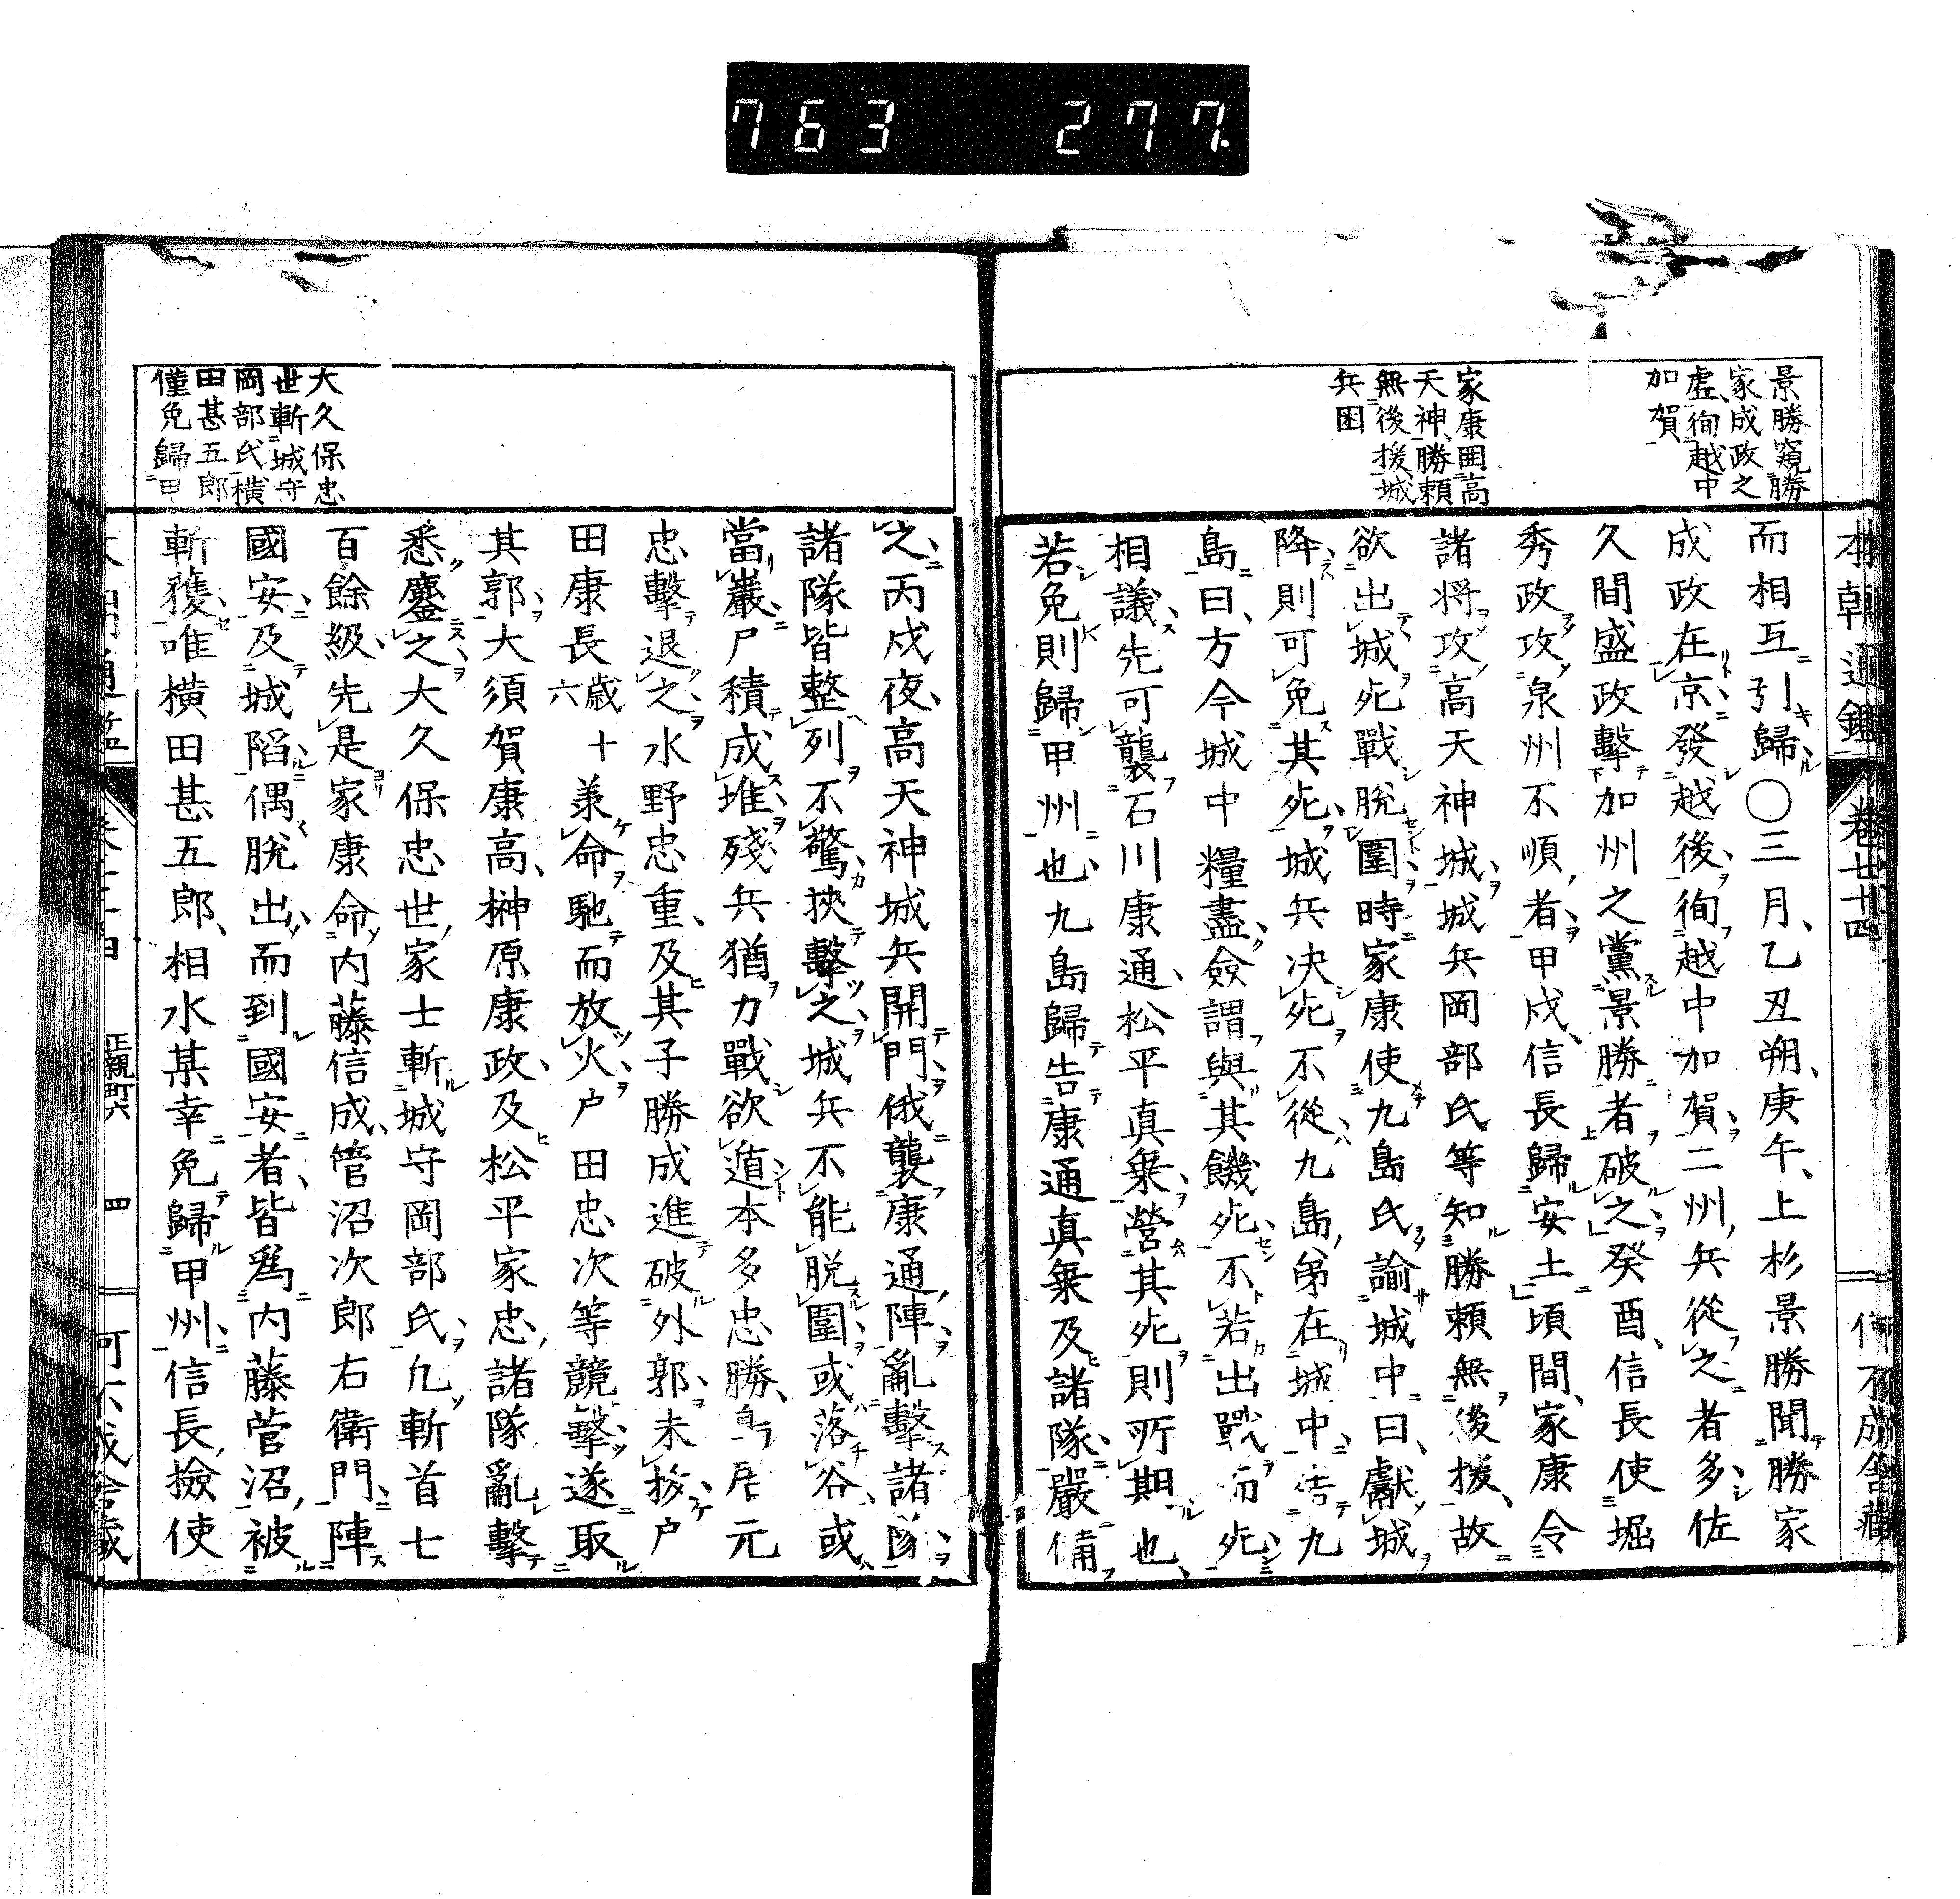 763 277.
本朝通鑑 卷七十四
景勝窺勝
家成政之
虚徇越中
加賀
家康囲高
天神勝頼
無後援城
兵困
而相互引歸〇三月乙丑朔庚午上杉景勝聞勝家
成政在京發越後徇越中加賀二州兵從之者多佐
久間盛政擊加州之黨景勝者破之癸酉信長使堀
秀政攻泉州不順者甲戌信長歸安土頃間家康令
諸将攻高天神城城兵岡部氏等知勝頼無後援故
欲出城死戰脫圍時家康使九島氏諭城中曰獻城
降則可免其死城兵决死不從九島弟在城中告九
島曰方今城中糧盡僉謂與其饑死不若出戰而死
相議先可襲石川康通松平真乗營其死則所期也
若免則歸甲州也九島歸告康通真乗及諸隊嚴備
之丙戌夜高天神城兵開門俄襲康通陣亂擊諸隊
諸隊皆整列不驚挾擊之城兵不能脱圍或落谷或
當巖尸積成堆殘兵猶力戰欲遁本多忠勝鳥居元
忠擊退之水野忠重及其子勝成進破外郭未拔户
田康長六歳十兼命馳而放火户田忠次等競擊遂取
其郭大須賀康高榊原康政及松平家忠諸隊亂擊
悉鏖之大久保忠世家士斬城守岡部氏凢斬首七
百餘級先是家康命内藤信成菅沼次郎右衛門陣
國安及城陷偶脫出而到國安者皆爲内藤菅沼被
斬獲唯橫田甚五郎相水某幸免歸甲州信長撿使
大久保忠
世斬城守
岡部氏橫
田甚五郎
僅免歸甲
正親町六 四